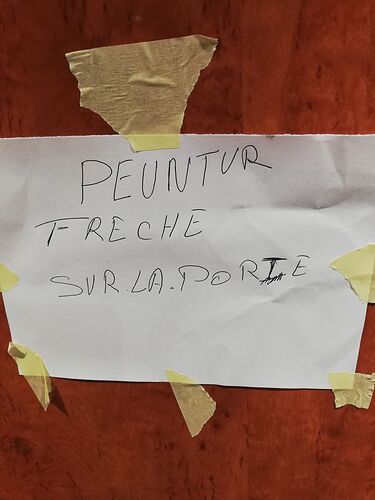 PEUNTUR
FRECHE
SUR.LA.PORTE